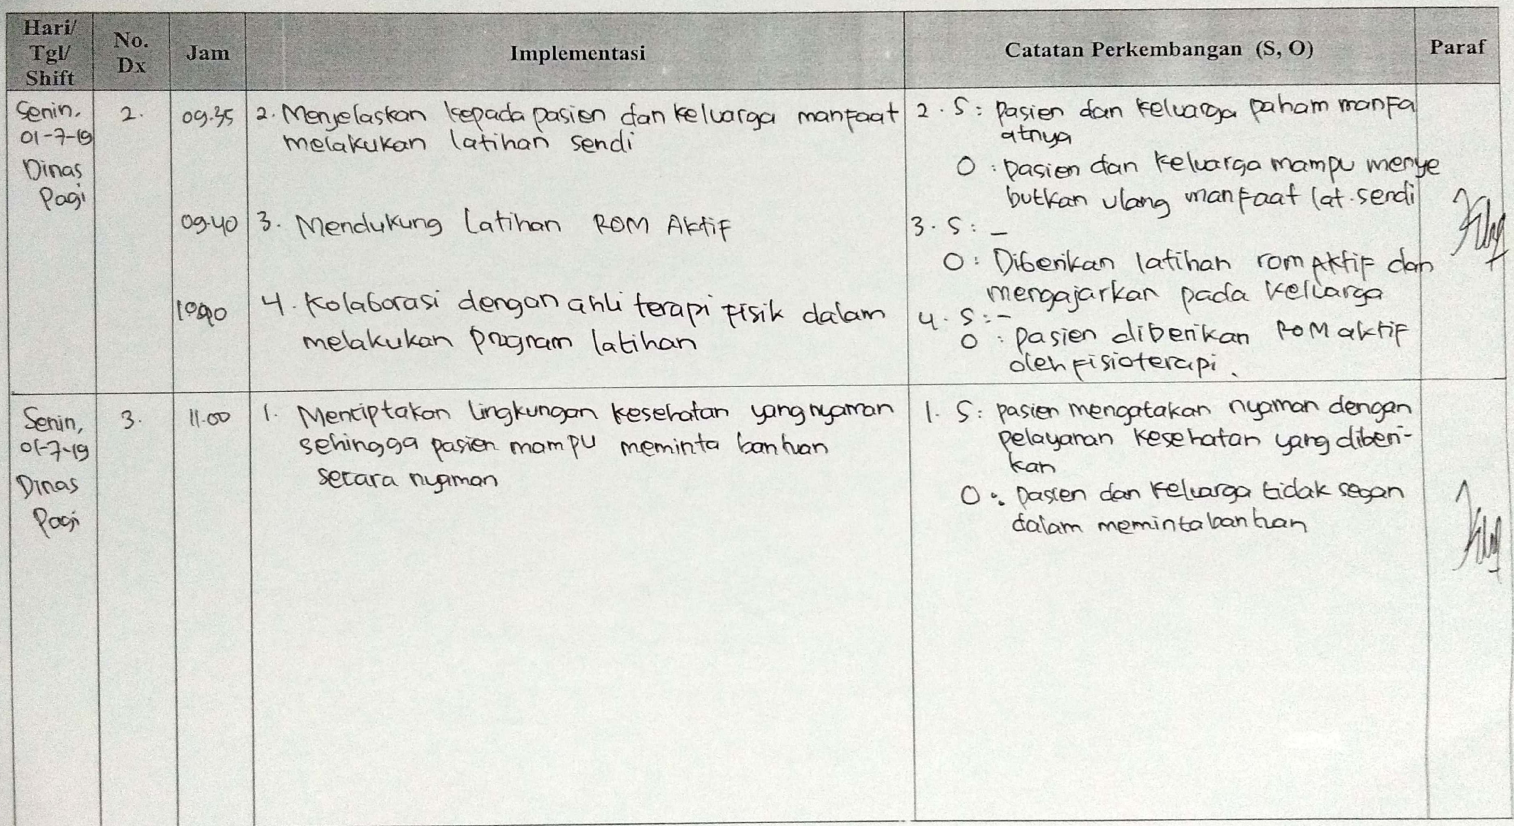 Hari/
Tgl/
Shift
No.
Dx
Jam
Implementasi
Catatan Perkembangan (S, O)
Paraf
Senin,
01-7-19
Dinas
Pagi
2.
09.35
2. Menjelaskan kepada pasien dan keluarga manfaat
melakukan latihan sendi
2. S: pasien dan keluarga paham manfa
atnya
O: pasien dan keluarga mampu menye
butkan ulang manfaat lat. sendi
09.40
3. Mendukung latihan ROM Aktif
3. S: -
O: Diberikan latihan rom Aktif dan
mengajarkan pada keluarga
4. Kolaborasi dengan ahli terapi fisik dalam
melakukan program latihan
4. S: -
O: pasien diberikan ROM aktif
oleh fisioterapi.
Senin,
01-7-19
Dinas
Pagi
3.
11.00
1. Menciptakan lingkungan kesehatan yang nyaman
sehingga pasien mampu meminta bantuan
secara nyaman
1. S: pasien mengatakan nyaman dengan
pelayanan kesehatan yang diberi-
kan
O: pasien dan keluarga tidak segan
dalam meminta bantuan